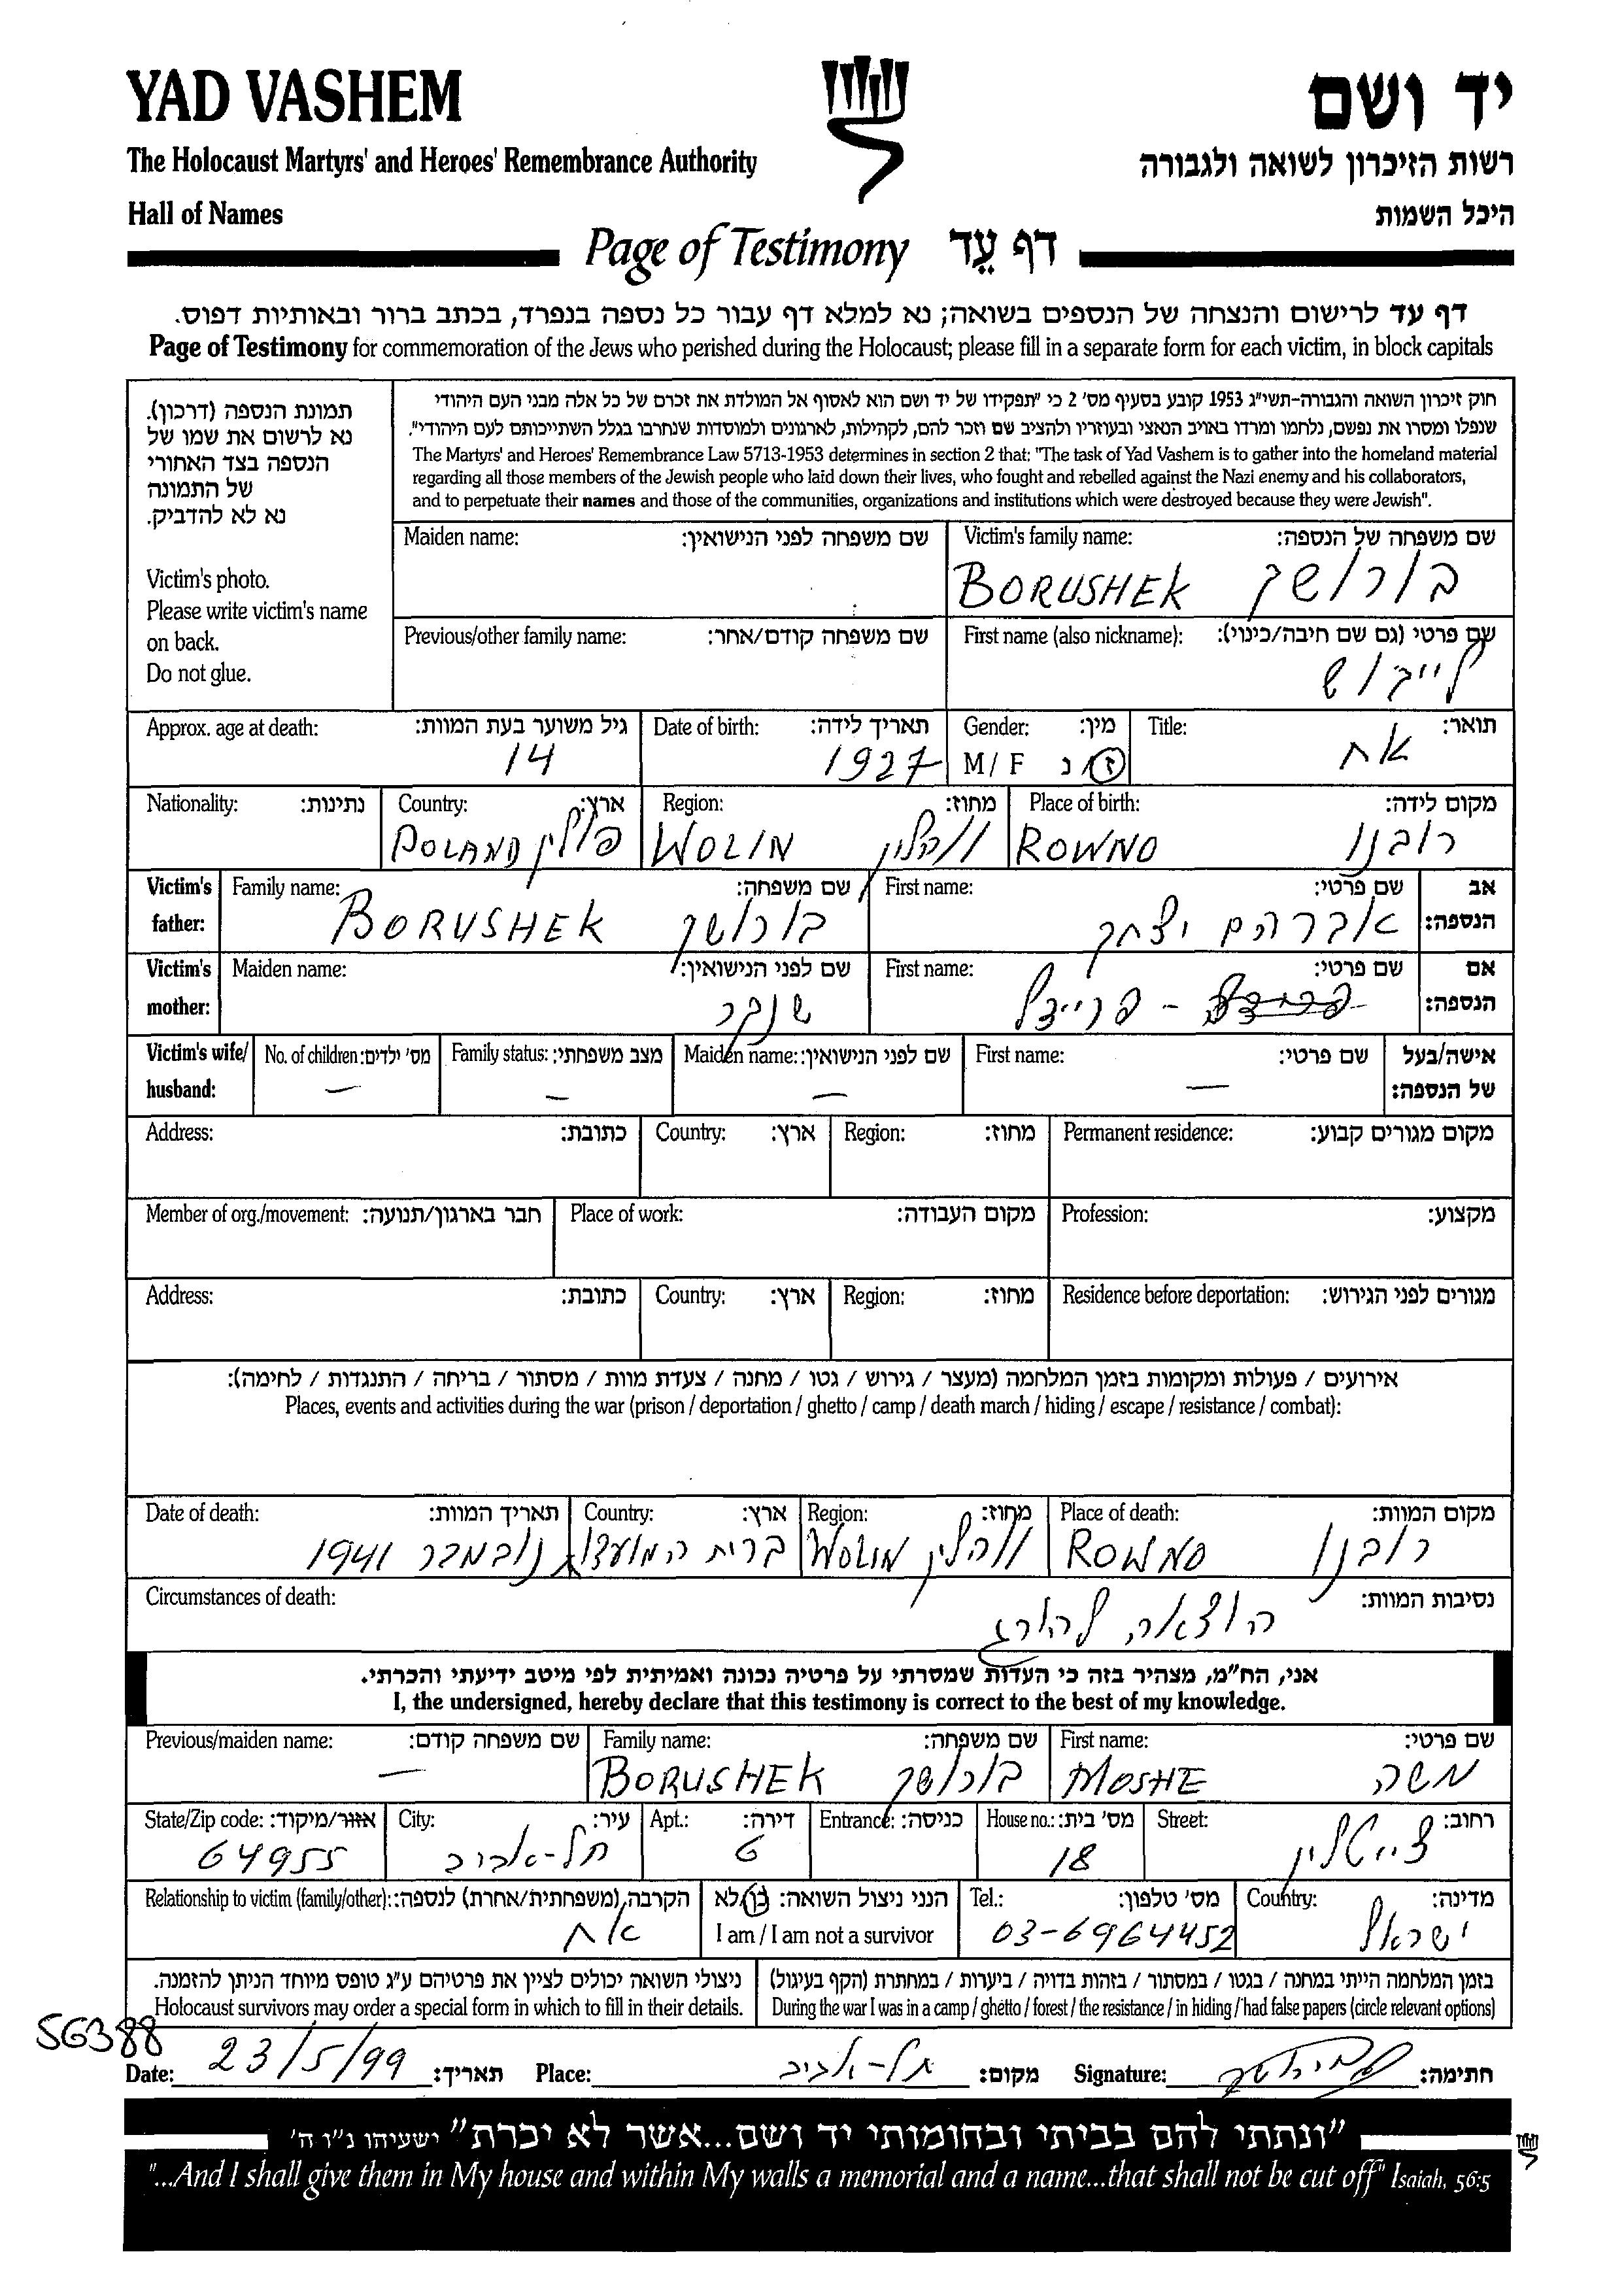 YAD VASHEM יד ושם
The Holocaust Martyrs' and Heroes' Remembrance Authority רשות הזיכרון לשואה ולגבורה
Hall of Names היכל השמות
Page of Testimony דף עֵד
דף עד לרישום והנצחה של הנספים בשואה; נא למלא דף עבור כל נספה בנפרד, בכתב ברור ובאותיות דפוס.
Page of Testimony for commemoration of the Jews who perished during the Holocaust; please fill in a separate form for each victim, in block capitals
תמונת הנספה (דרכון).
נא לרשום את שמו של
הנספה בצד האחורי
של התמונה
נא לא להדביק.
Victim's photo.
Please write victim's name
on back.
Do not glue.
חוק זיכרון השואה והגבורה-תשי"ג 1953 קובע בסעיף מס' 2 כי "תפקידו של יד ושם הוא לאסוף אל המולדת את זכרם של כל אלה מבני העם היהודי
שנפלו ומסרו את נפשם, נלחמו ומרדו באויב הנאצי ובעוזריו ולהציב שם וזכר להם, לקהילות, לארגונים ולמוסדות שנחרבו בגלל השתייכותם לעם היהודי".
The Martyrs' and Heroes' Remembrance Law 5713-1953 determines in section 2 that: "The task of Yad Vashem is to gather into the homeland material
regarding all those members of the Jewish people who laid down their lives, who fought and rebelled against the Nazi enemy and his collaborators,
and to perpetuate their names and those of the communities, organizations and institutions which were destroyed because they were Jewish".
Maiden name: שם משפחה לפני הנישואין: Victim's family name: שם משפחה של הנספה:
BORUSHEK בורושק
Previous/other family name: שם משפחה קודם/אחר: First name (also nickname): שם פרטי (גם שם חיבה/כינוי):
לייבוש
Approx. age at death: גיל משוער בעת המוות: Date of birth: תאריך לידה: Gender: מין: Title: תואר:
14 1927 M / F ז/נ אח
Nationality: נתינות: Country: ארץ: Region: מחוז: Place of birth: מקום לידה:
POLAND פולין WOLIN ווהלין ROWNO רובנו
Victim's Family name: שם משפחה: First name: שם פרטי: אב
father: BORUSHEK בורושק אברהם יצחק הנספה:
Victim's Maiden name: שם לפני הנישואין: First name: שם פרטי: אם
mother: שנקר - פריידל הנספה:
Victim's wife/ No. of children: מס' ילדים: Family status: מצב משפחתי: Maiden name: שם לפני הנישואין: First name: שם פרטי: אישה/בעל
husband: – – – – של הנספה:
Address: כתובת: Country: ארץ: Region: מחוז: Permanent residence: מקום מגורים קבוע:
Member of org./movement: חבר בארגון/תנועה: Place of work: מקום העבודה: Profession: מקצוע:
Address: כתובת: Country: ארץ: Region: מחוז: Residence before deportation: מגורים לפני הגירוש:
אירועים / פעולות ומקומות בזמן המלחמה (מעצר / גירוש / גטו / מחנה / צעדת מוות / מסתור / בריחה / התנגדות / לחימה):
Places, events and activities during the war (prison / deportation / ghetto / camp / death march / hiding / escape / resistance / combat):
Date of death: תאריך המוות: Country: ארץ: Region: מחוז: Place of death: מקום המוות:
נובמבר 1941 ברית המועצות WOLIN ווהלין ROWNO רובנו
Circumstances of death: נסיבות המוות:
הוצאה להורג
אני, הח"מ, מצהיר בזה כי העדות שמסרתי על פרטיה נכונה ואמיתית לפי מיטב ידיעתי והכרתי.
I, the undersigned, hereby declare that this testimony is correct to the best of my knowledge.
Previous/maiden name: שם משפחה קודם: Family name: שם משפחה: First name: שם פרטי:
– BORUSHEK בורושק MOSHE משה
State/Zip code: אזור/מיקוד: City: עיר: Apt.: דירה: Entrance: כניסה: House no.: מס' בית: Street: רחוב:
64955 תל-אביב 6 18 צייטלין
Relationship to victim (family/other): הקרבה (משפחתית/אחרת) לנספה: הנני ניצול השואה: כן/לא Tel.: מס' טלפון: Country: מדינה:
אח I am / I am not a survivor 03-6964452 ישראל
ניצולי השואה יכולים לציין את פרטיהם ע"ג טופס מיוחד הניתן להזמנה. בזמן המלחמה הייתי במחנה / בגטו / במסתור / בזהות בדויה / ביערות / במחתרת (הקף בעיגול)
Holocaust survivors may order a special form in which to fill in their details. During the war I was in a camp / ghetto / forest / the resistance / in hiding / had false papers (circle relevant options)
56388
Date: 23/5/99 תאריך: Place: תל-אביב מקום: Signature: חתימה:
"ונתתי להם בביתי ובחומותי יד ושם...אשר לא יכרת" ישעיהו נ"ו ה'
"...And I shall give them in My house and within My walls a memorial and a name...that shall not be cut off" Isaiah, 56:5